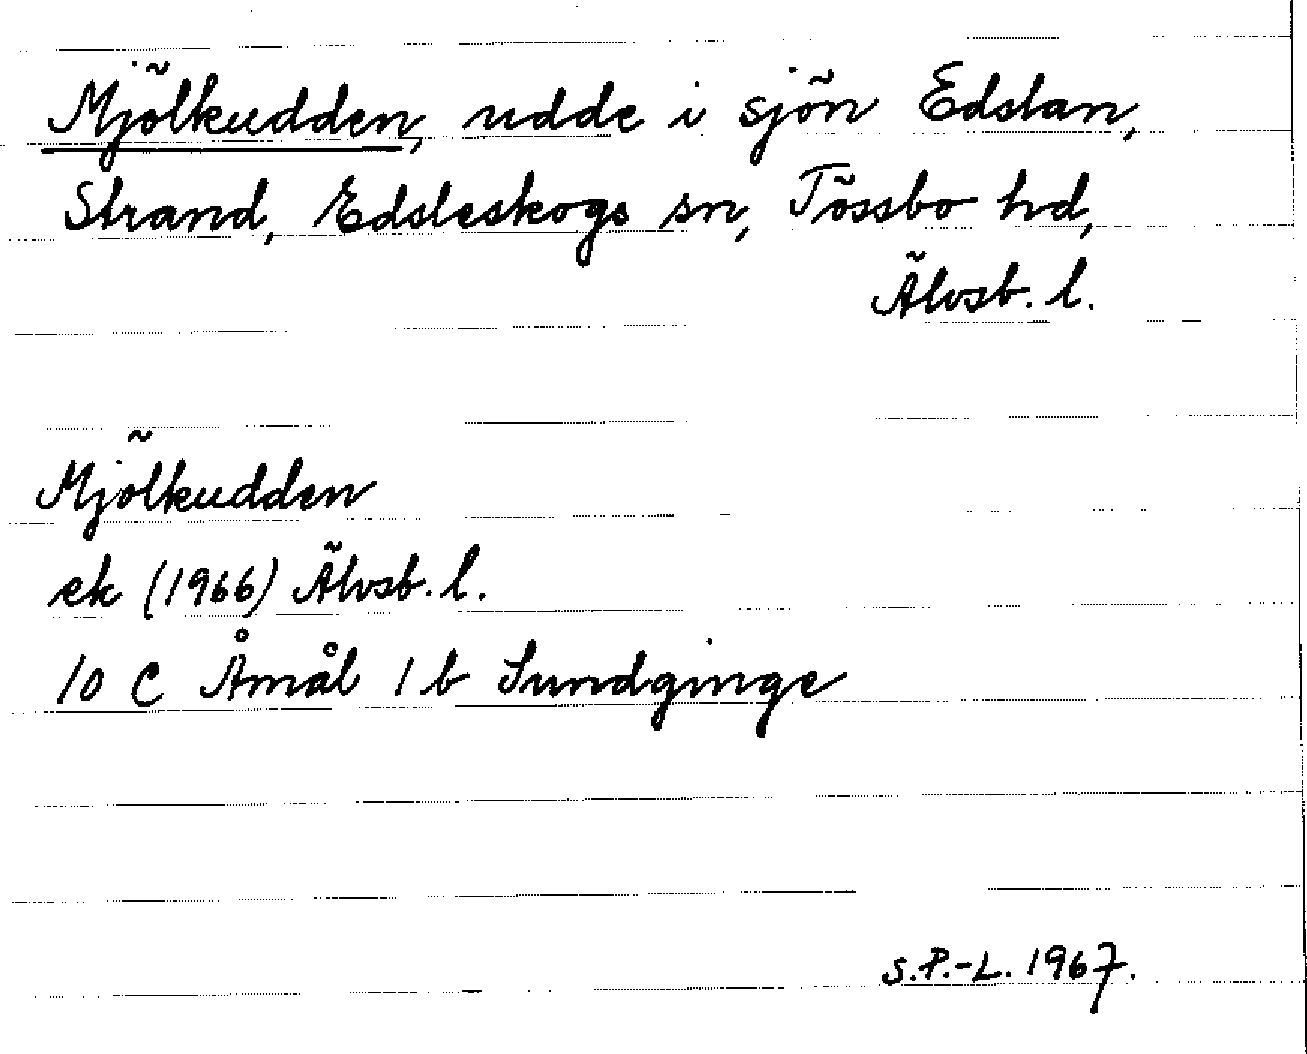 Mjölkudden, udde i sjön Edslan,
Strand, Edsleskogs sn, Tössbo hd,
Älvsb. l.
Mjölkudden
ek (1966) Älvsb. l.
10 C Åmål 1 b Sundginge
S.P.-L. 1967.